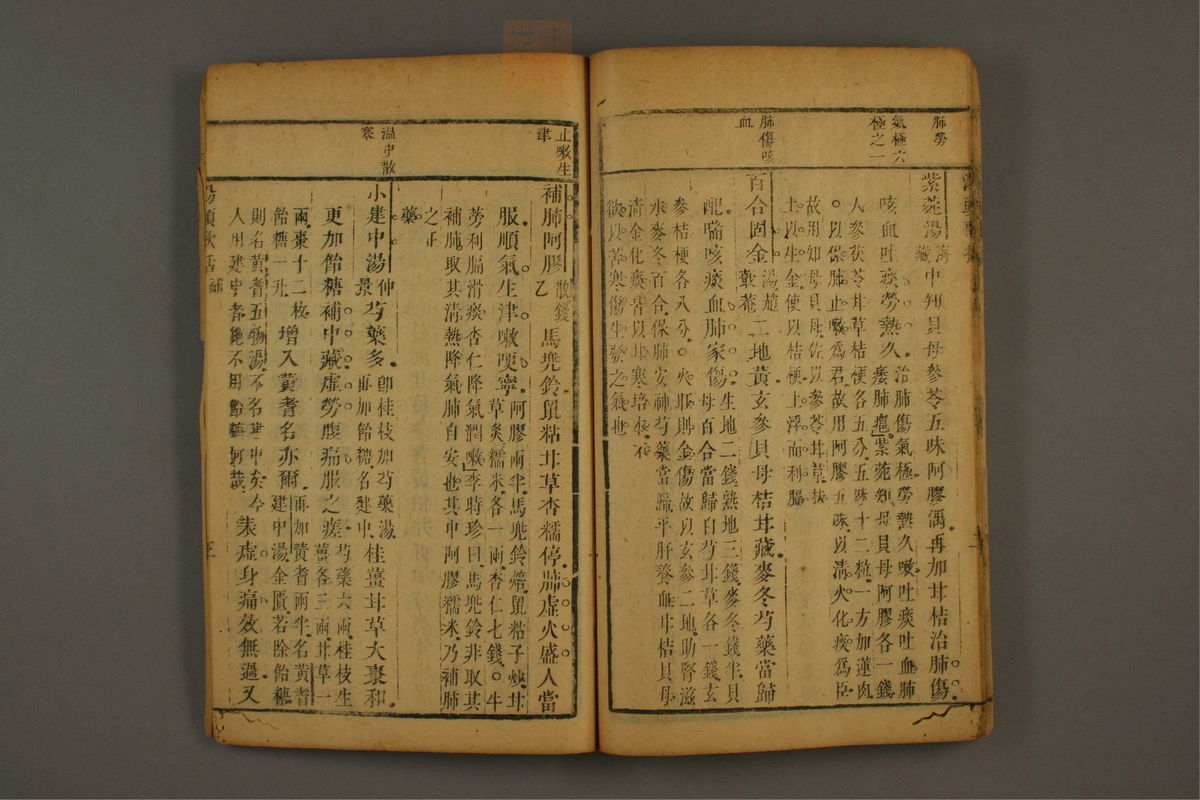 肺勞
氣極六
極之一
肺傷咳
血
紫菀湯海藏中知貝母參苓五味阿膠偶再加甘桔治肺傷
咳血吐痰勞熱久治肺傷氣極勞熱久嗽吐痰吐血肺
痿肺癰紫菀知母貝母阿膠各一錢
人參茯苓甘草桔梗各五分五味十二粒一方加蓮肉
以保肺止嗽爲君故用阿膠五味以清火化痰爲臣
故用知母貝母佐以參苓甘草扶
土以生金使以桔梗上浮而利膈
百合固金湯趙蕺菴二地黃玄參貝母桔甘藏麥冬芍藥當歸
配喘咳痰血肺家傷生地二錢熟地三錢麥冬錢半貝
母百合當歸白芍甘草各一錢玄
參桔梗各八分火旺則金傷故以玄參二地助腎滋
水麥冬百合保肺安神芍藥當歸平肝養血甘桔貝母
清金化痰皆以甘寒培本不
欲以苦寒傷生發之氣也
止嗽生
津
溫中散
寒
補肺阿膠散錢乙馬兜鈴鼠粘甘草杏糯停肺虛火盛人當
服順氣生津嗽哽寧阿膠兩半馬兜鈴焙鼠粘子炒甘
草炙糯米各一兩杏仁七錢牛
蒡利膈滑痰杏仁降氣潤嗽李時珍曰馬兜鈴非取其
補肺取其清熱降氣肺自安也其中阿膠糯米乃補肺
之正
藥
小建中湯仲景芍藥多即桂枝加芍藥湯
再加飴糖名建中桂薑甘草大棗和
更加飴糖補中藏虛勞腹痛服之瘥芍藥六兩桂枝生
薑各三兩甘草一
兩棗十二枚
飴糖一升增入黃耆名亦爾再加黃耆兩半名黃耆
建中湯金匱若除飴糖
則名黃耆五物湯不名建中矣今
人用建中者絕不用飴糖何哉表虛身痛效無過又
湯頭歌括 補 三